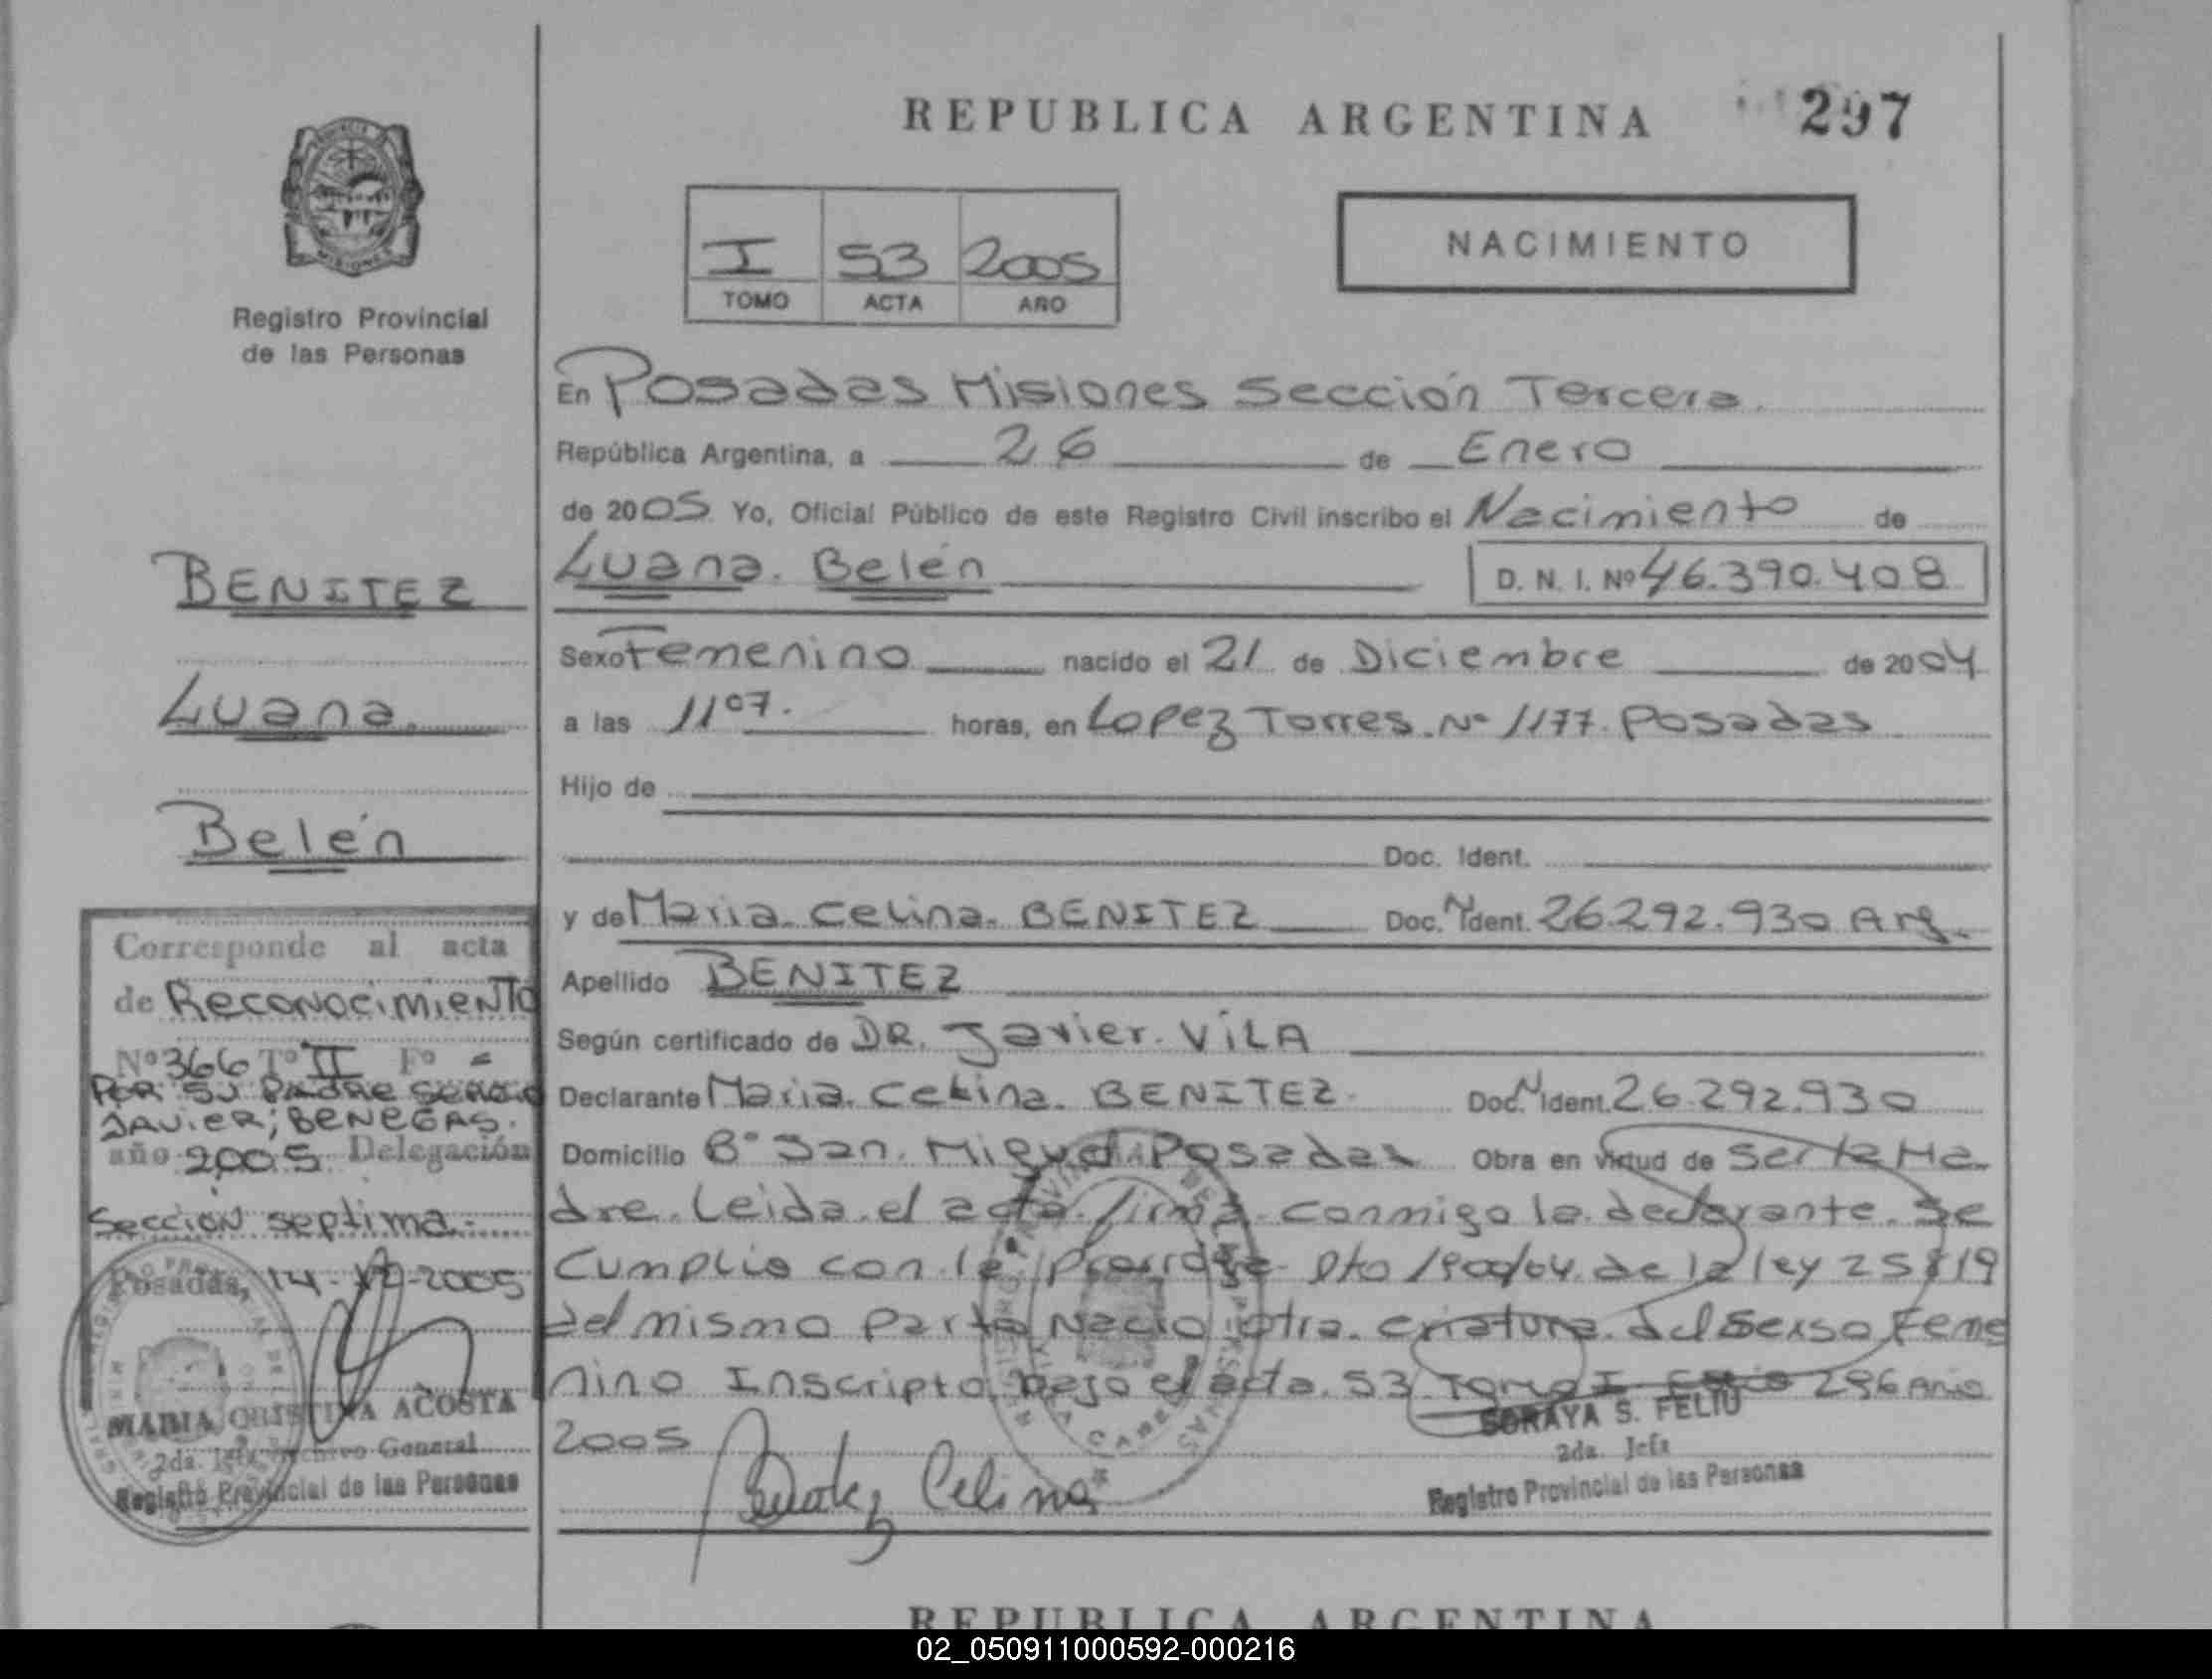 REPUBLICA ARGENTINA 297
I 53 2005
TOMO ACTA AÑO
NACIMIENTO
Registro Provincial
de las Personas
En Posadas Misiones Sección Tercera.
República Argentina, a 26 de Enero
de 2005 Yo, Oficial Público de este Registro Civil inscribo el Nacimiento de
Luana. Belén D. N. I. Nº 46.390.408
Sexo Femenino nacido el 21 de Diciembre de 2004
a las 11 07. horas, en Lopez Torres. Nº 1177. Posadas
Hijo de
Doc. Ident.
y de Maria. Celina. BENITEZ Doc. N Ident. 26.292.930 Arg.
Apellido BENITEZ
Según certificado de DR. Javier. VILA
Declarante Maria. Celina. BENITEZ. Doc. N Ident. 26.292.930
Domicilio Bº San. Miguel. Posadas Obra en virtud de ser la Ma
dre. Leida. el acta. firma. conmigo la. declarante. Se
Cumplio con la Prorroga Dto 1900/04. de la ley 25819
del mismo parto Nacio otra. criatura. del Sexso Feme
nino Inscripta bajo el acta. 53 Tomo I Folio 296 Año
2005
Benitez Celina
SORAYA S. FELIU
2da. Jefa
Registro Provincial de las Personas
BENITEZ
Luana.
Belén
Corresponde al acta
de Reconocimiento
Nº 366 Tº II Fº =
POR SU PADRE SERGIO
JAVIER; BENEGAS.
año 2005 Delegación
Sección septima.
Posadas, 14-12-2005
MARIA CRISTINA ACOSTA
2da. Jefa Archivo General
Registro Provincial de las Personas
REPUBLICA ARGENTINA
02_050911000592-000216